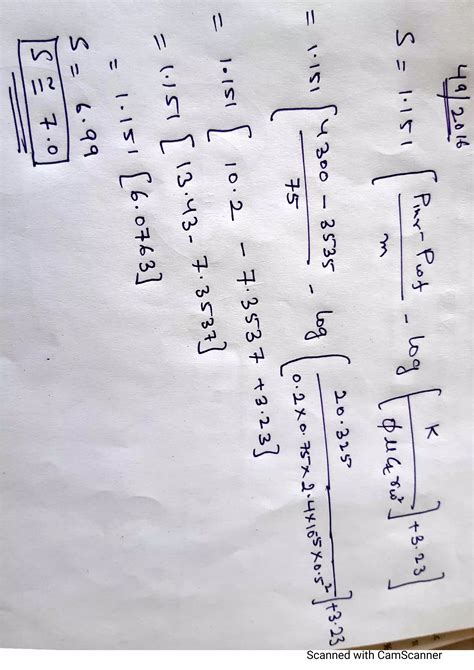 49/2016
S = 1.151 [ Pihr - Pwf / m - log [ K / φ μ Ct rw² ] + 3.23 ]
= 1.151 [ 4300 - 3535 / 75 - log [ 20.325 / 0.2 × 0.75 × 2.4 × 10⁻⁵ × 0.5² ] + 3.23
= 1.151 [ 10.2 - 7.3537 + 3.23 ]
= 1.151 [ 13.43 - 7.3537 ]
= 1.151 [ 6.0763 ]
S = 6.99
S ≅ 7.0
Scanned with CamScanner